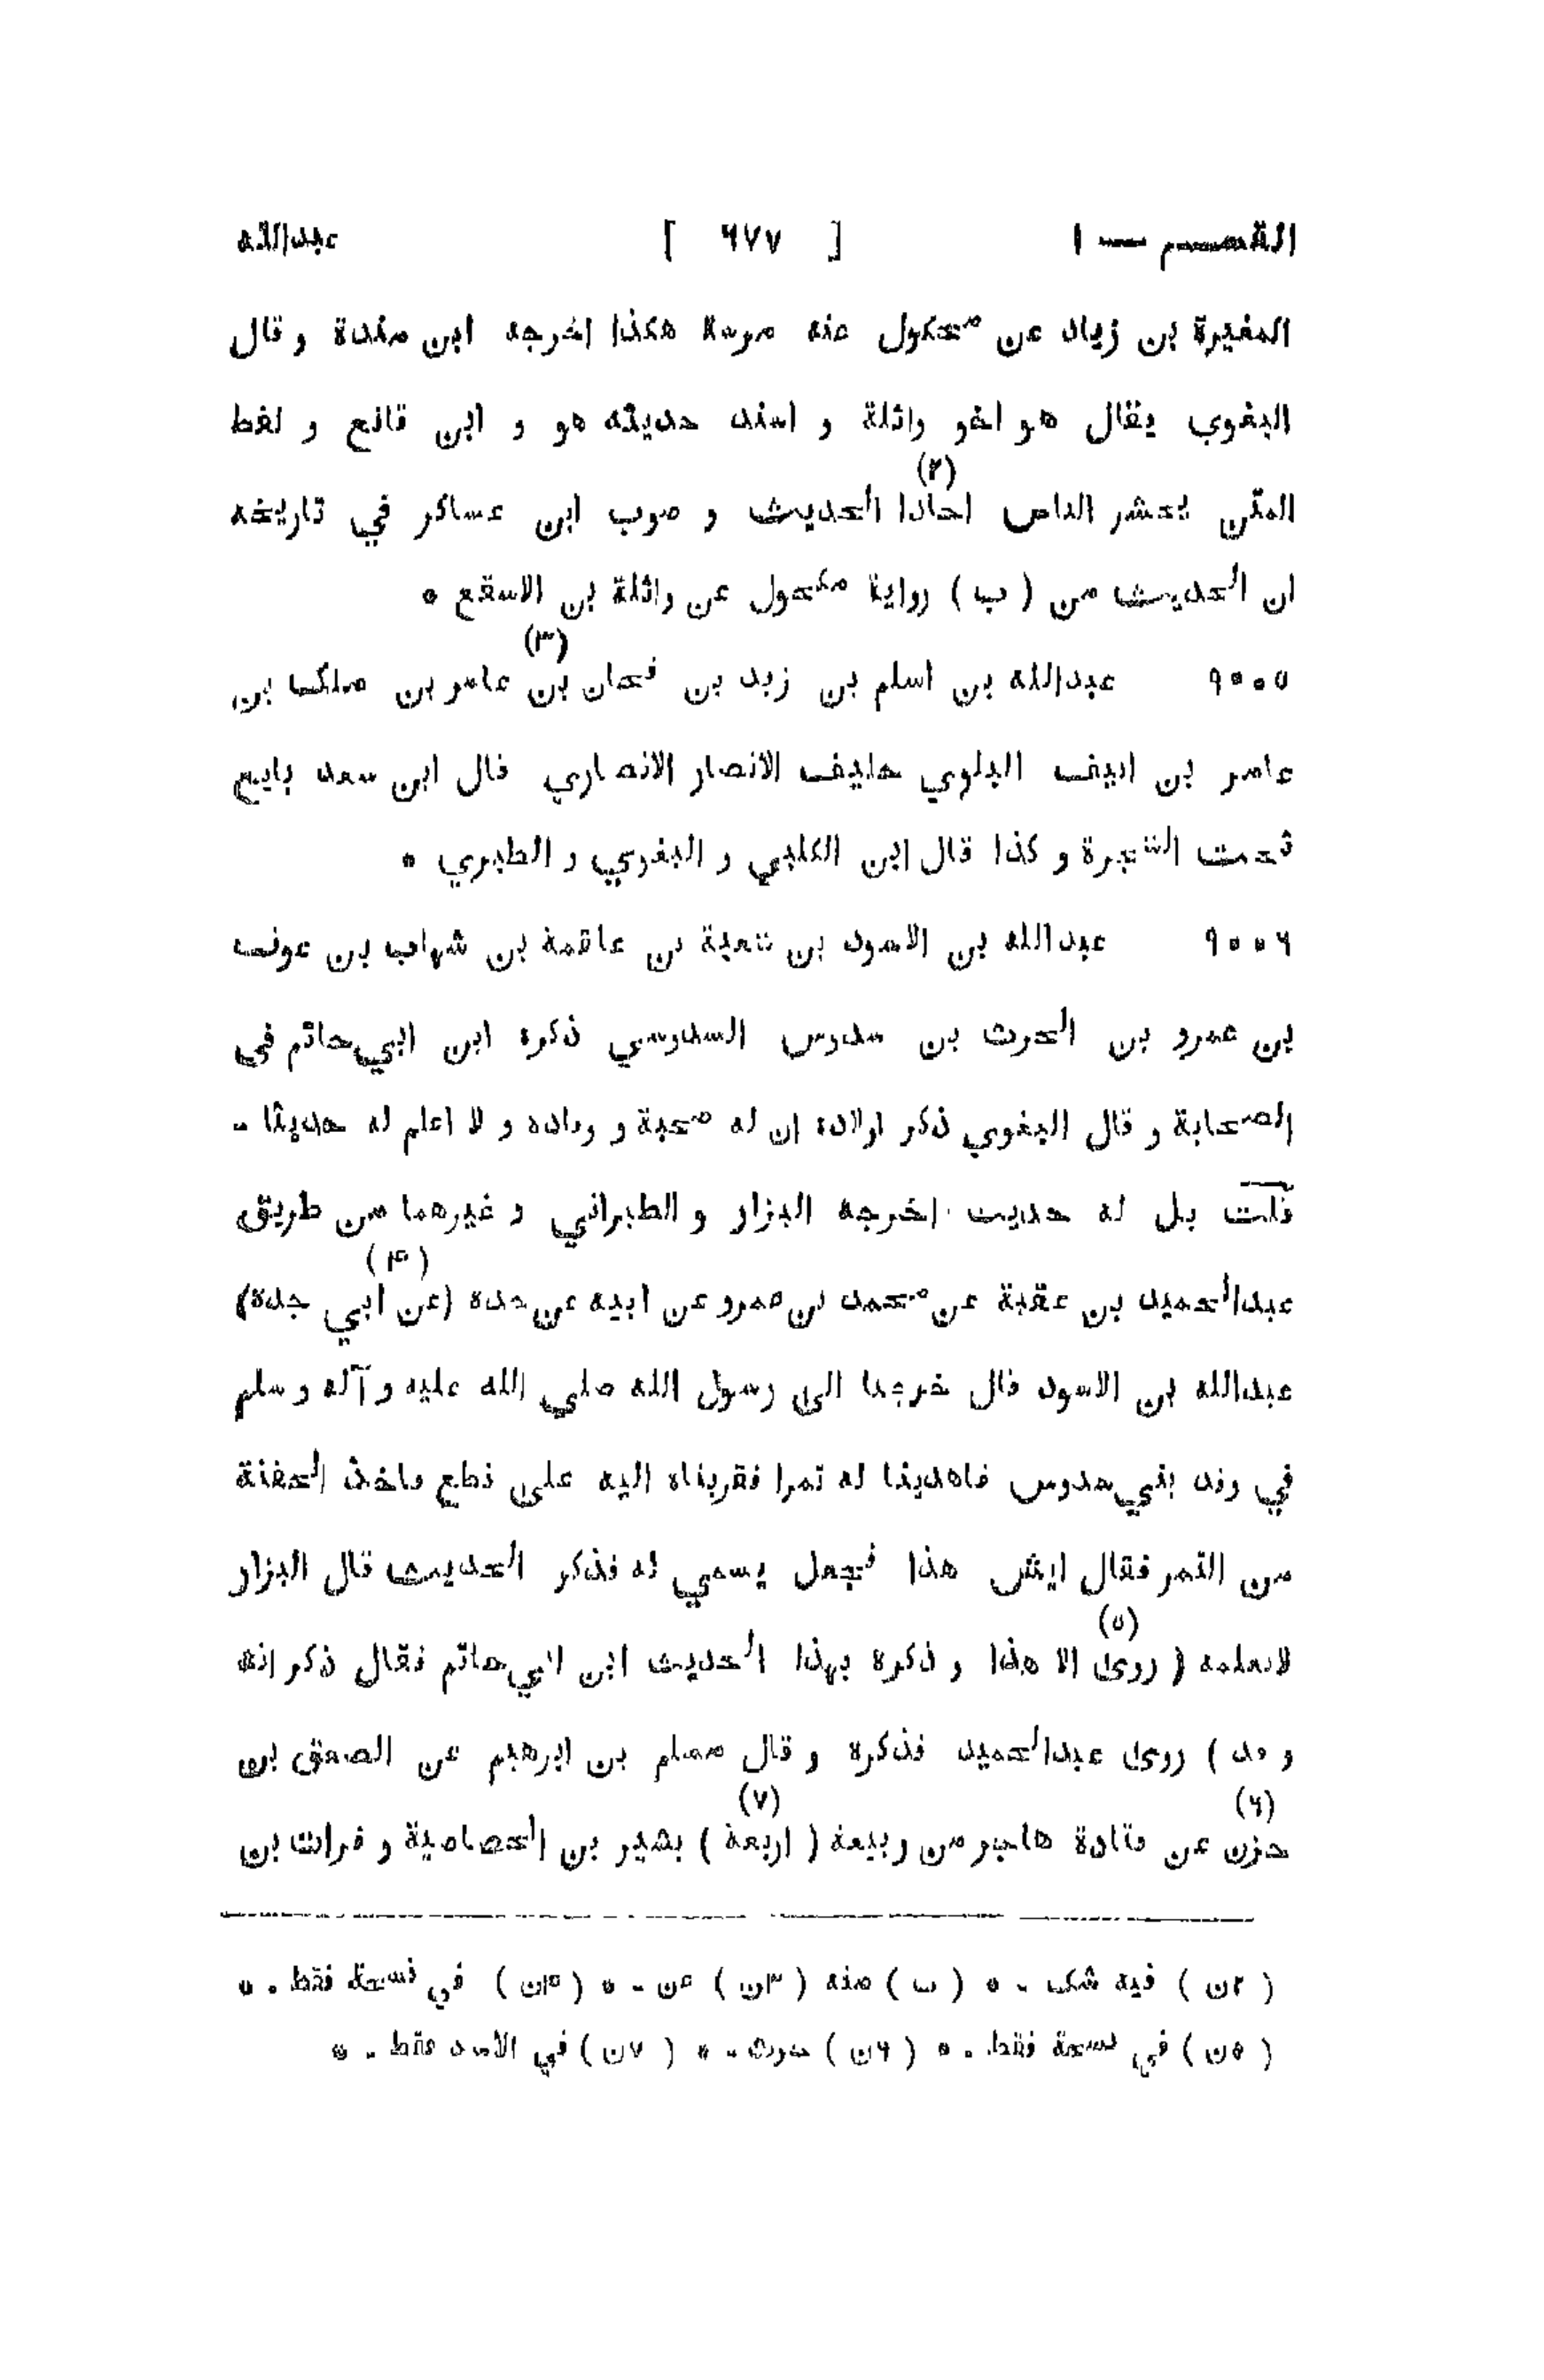 القسم — ١ [ ٦٧٧ ] عبدالله
المغيرة بن زياد عن مكحول عنه مرسلا هكذا اخرجه ابن مندة و قال
البغوي يقال هو اخو واثلة و اسند حديثه هو و ابن قانع و لفظ
(٢)
المتن يحشر الناس احادا الحديث و صوب ابن عساكر في تاريخه
ان الحديث من ( ب ) رواية مكحول عن واثلة بن الاسقع *
(٣)
٩٠٠٥ عبدالله بن اسلم بن زيد بن فحان بن عامر بن ملك بن
عامر بن انيف البلوي حليف الانصار الانصاري قال ابن سعد بايع
تحت الشجرة و كذا قال ابن الكلبي و البغوي و الطبري *
٩٠٠٦ عبدالله بن الاسود بن شعبة بن علقمة بن شهاب بن عوف
بن عمرو بن الحرث بن سدوس السدوسي ذكره ابن ابي حاتم في
الصحابة و قال البغوي ذكر اولاده ان له صحبة و وفاده و لا اعلم له حديثا -
قلت بل له حديث اخرجه البزار و الطبراني و غيرهما من طريق
(۴)
عبدالحميد بن عقبة عن محمد بن عمرو عن ابيه عن جده (عن ابي جدة)
عبدالله بن الاسود قال خرجنا الى رسول الله صلي الله عليه و آله و سلم
في وفد بني سدوس فاهدينا له تمرا فقربناه اليه على نطع فاخذ الحفنة
من التمر فقال ايش هذا فجعل يسمي له فذكر الحديث قال البزار
(٥)
لانعلمه ( روى الا هذا و ذكره بهذا الحديث ابن ابي حاتم فقال ذكر انه
و فد ) روى عبدالحميد فذكره و قال مسلم بن ابرهيم عن الصعق بن
(٦) (٧)
حزن عن قتادة هاجر من ربيعة ( اربعة ) بشير بن الخصاصية و فرات بن
( ٢ن ) فيه شك - * ( ب ) منه ( ٣ن ) عن - * ( ۴ن ) في نسخة فقط - *
( ٥ن ) في نسخة فقط - * ( ٦ن ) حرث - * ( ٧ن ) في الاسد فقط - *